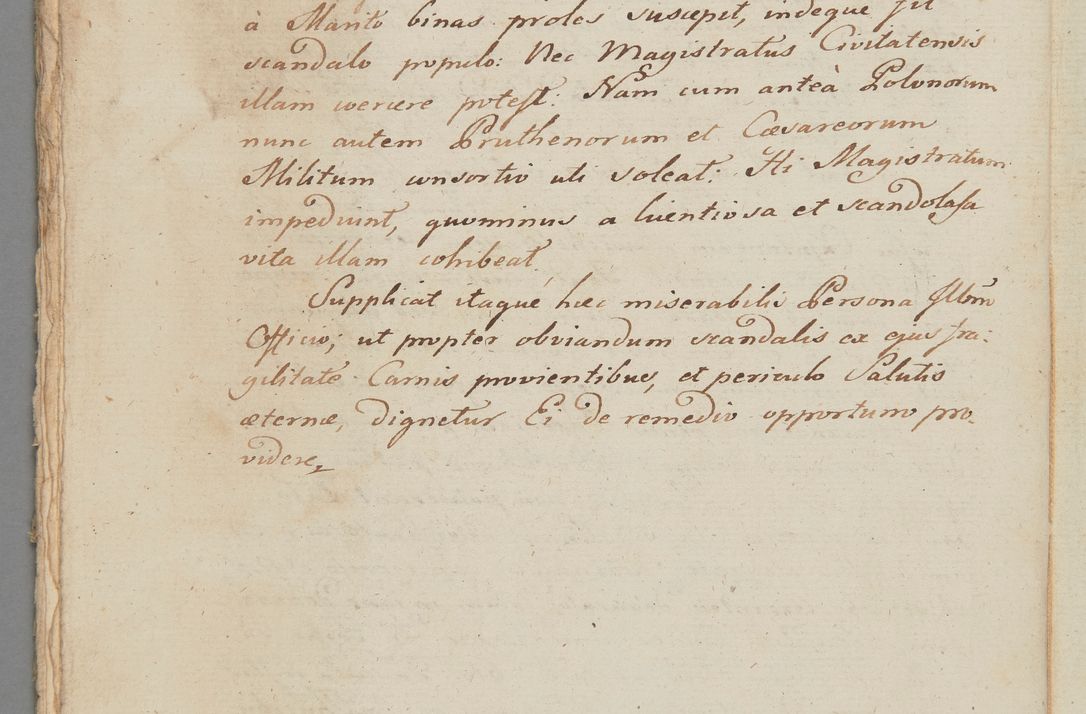 à Marito binas proles suscepit, indeque fit
scandalo populo: Nec Magistratus Civitatensis
illam coercere potest: Nam cum anteà Polonorum
nunc autem Pruthenorum et Cæsareorum
Militum consortio uti soleat: Hi Magistratum
impediunt, quominus a licentiosa et scandolosa
vita illam cohibeat
Supplicat itaque hæc miserabilis Persona Illm̃o
Officio; ut propter obviandum scandalis ex ejus fra:
gilitate Carnis provientibus, et periculo Salutis
æternæ, dignetur Ei de remedio opportuno pro:
videre,